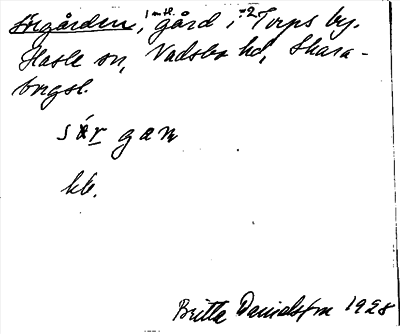 Sörgården, 1 mtl. gård i Torps by.
Hasle sn, Vadsbo hd, Skara-
borgsl.
sör gan
kk.
Britta Danielsson 1928